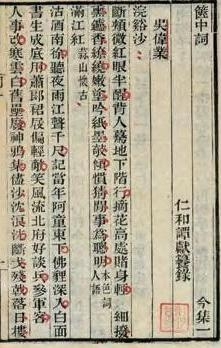 篋中詞 今集一
仁和譚獻纂錄
吳偉業
浣谿沙
斷頰微紅眼半醒背人驀地下階行摘花高處賭身輕 細撥
薰爐香繚繞嫩塗吟紙墨欹傾慣猜閒事為聰明 本色詞人語
滿江紅 蒜山懷古
沽酒南徐聽夜雨江聲千尺記當年阿童東下佛貍深入白面
書生成底用蕭郎裙屐偏輕敵笑風流北府好談兵參軍客
人事改寒雲白舊壘廢神鴉集儘沙沈浪洗斷戈殘戟落日樓